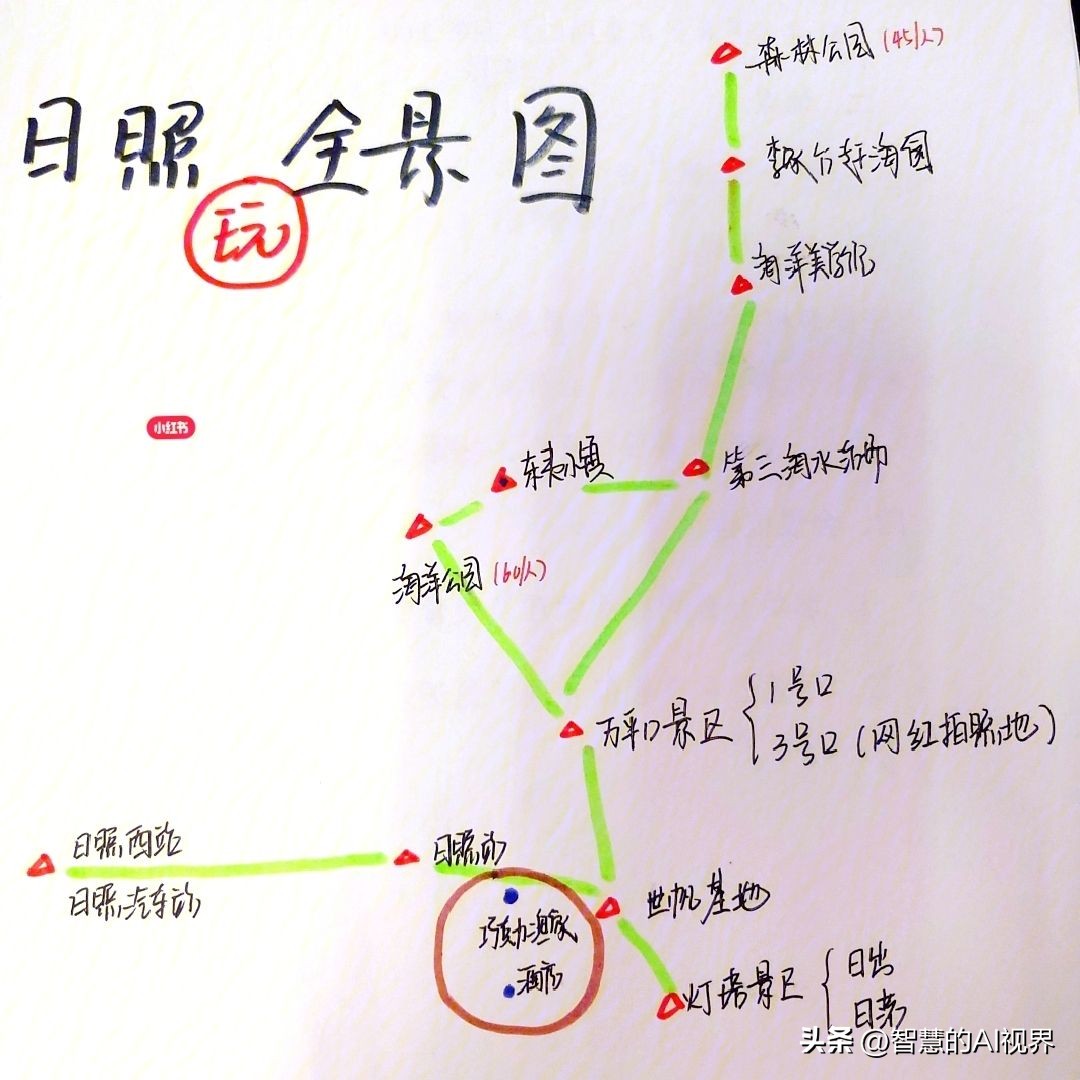 日照 全景图
玩
森林公园(45/人)
李家台赶海园
海洋美学馆
小红书
东夷小镇
第三海水浴场
海洋公园(60/人)
万平口景区
1号口
3号口(网红拍照地)
日照西站
日照汽车站
日照站
世帆基地
渔家
酒店
灯塔景区
日出
日落
头条 @智慧的AI视界